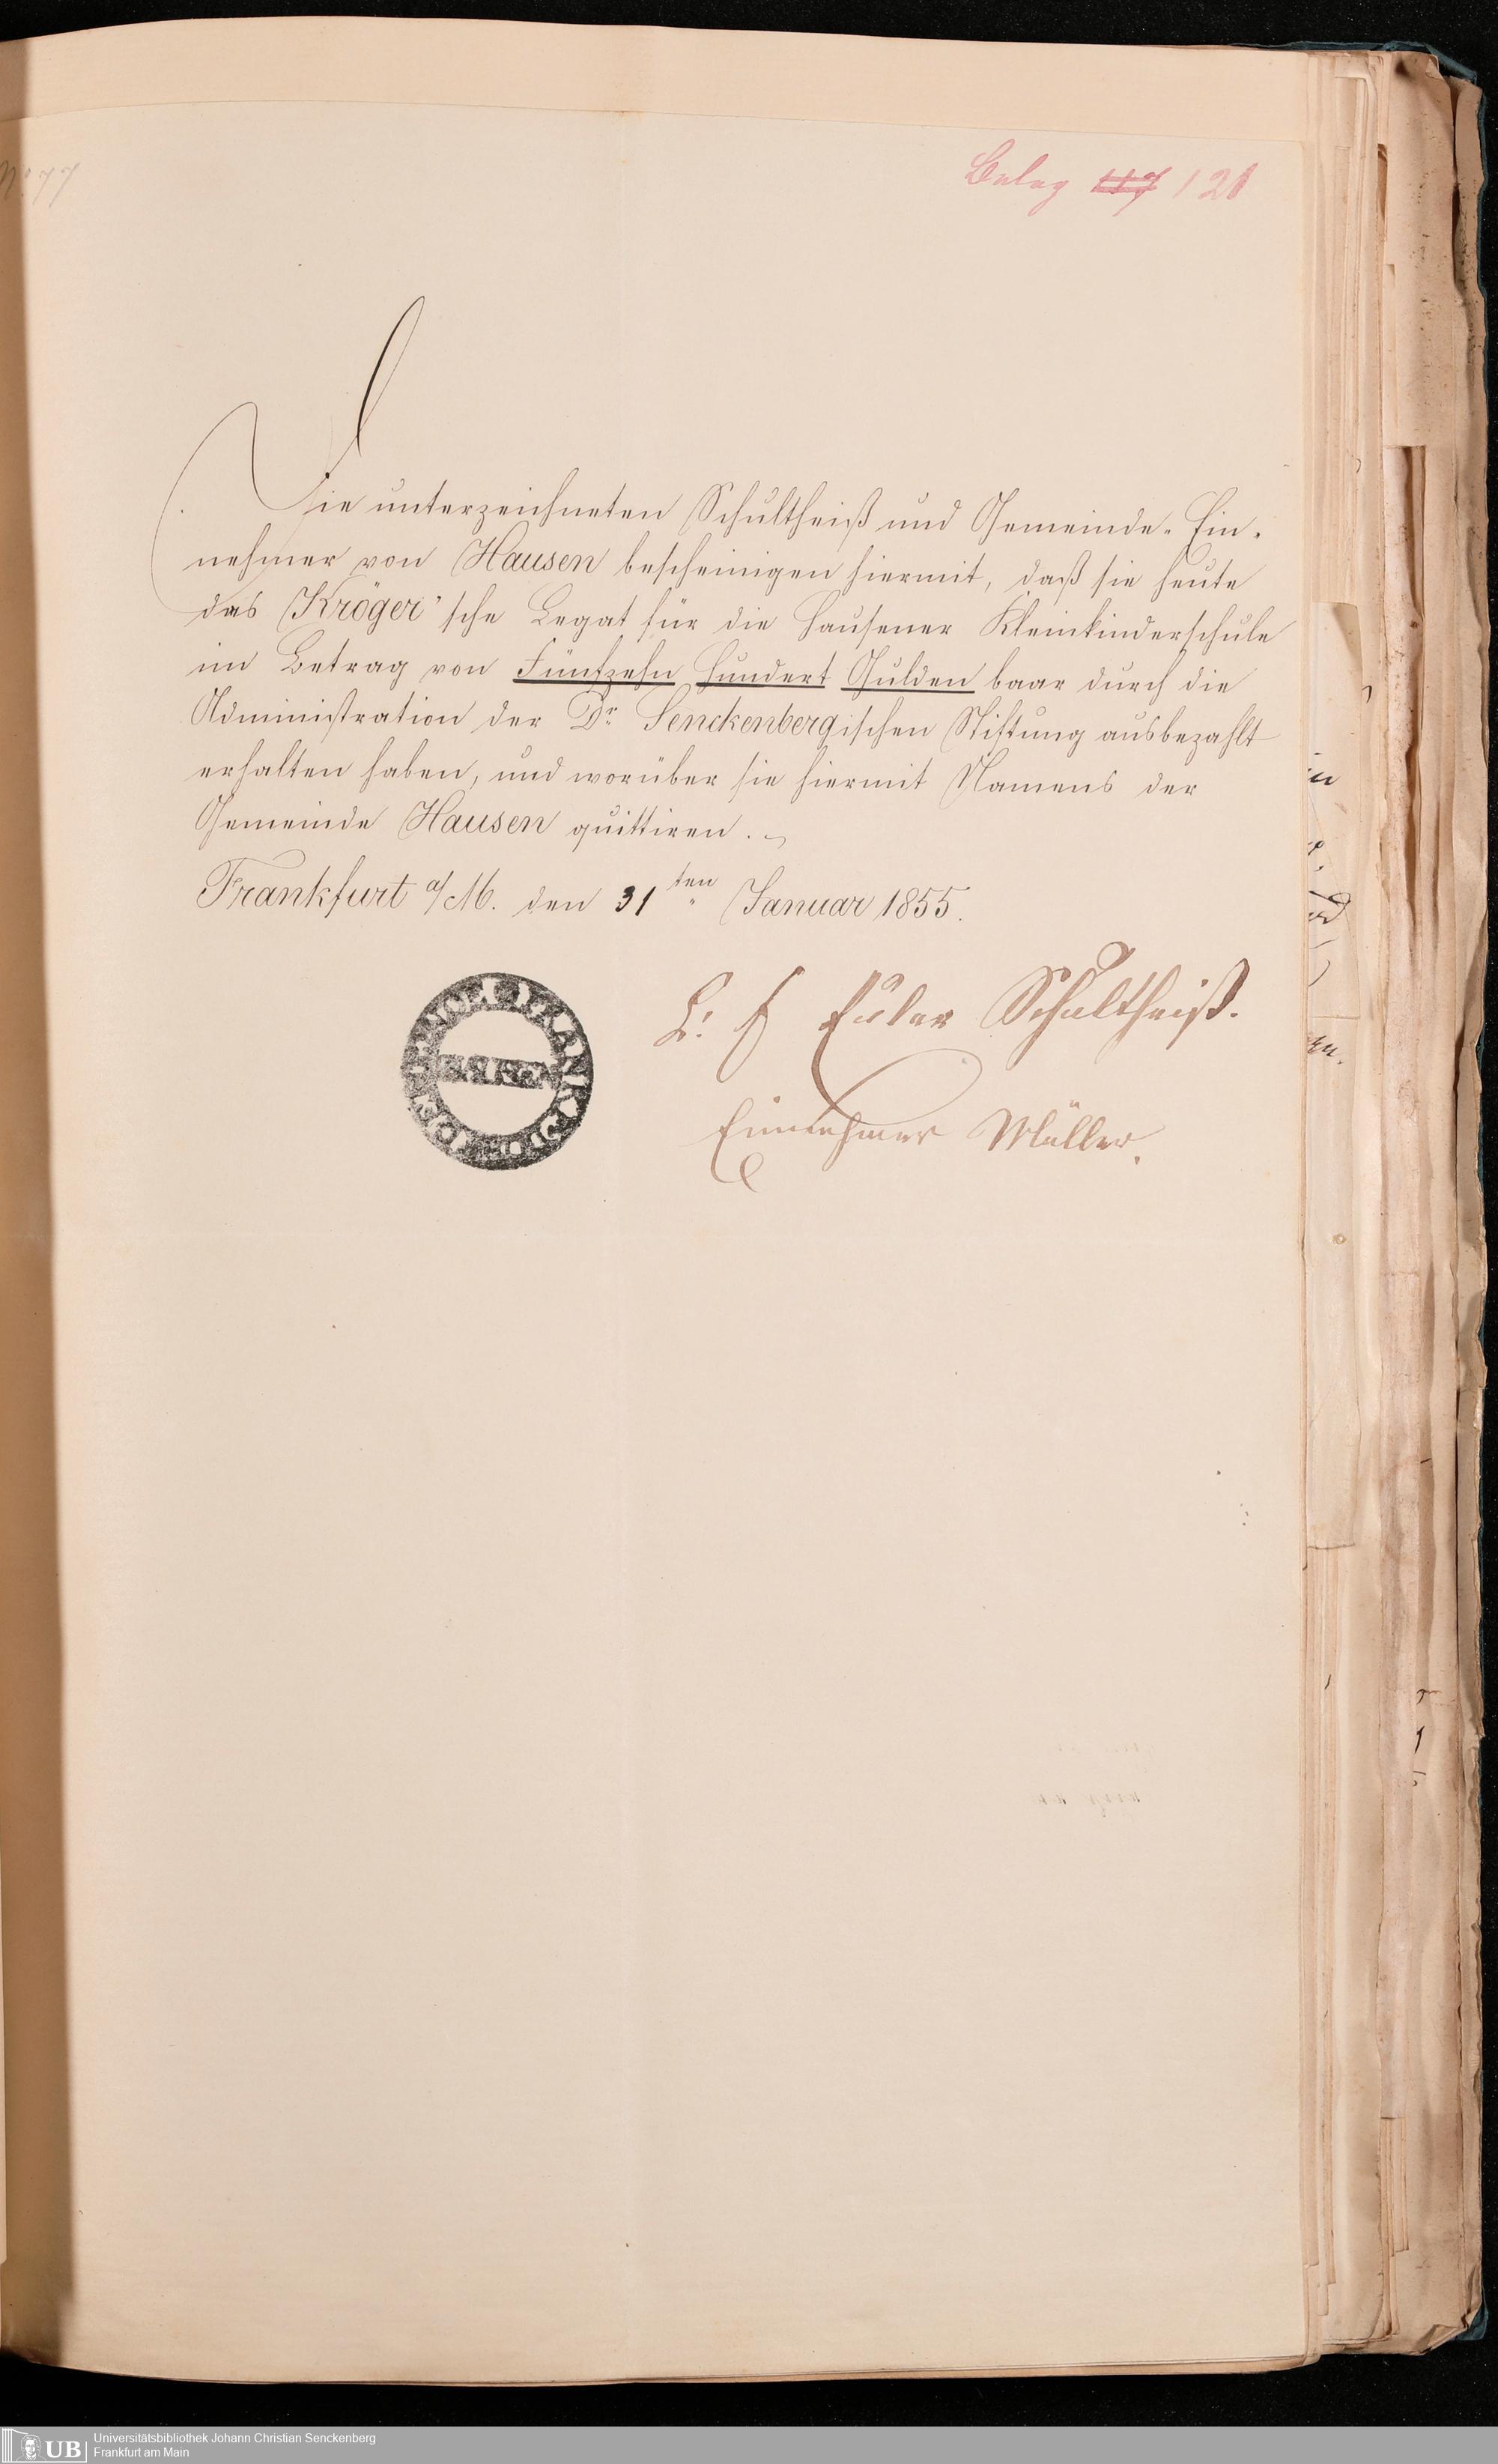 No 77
Beleg 117 121
Die unterzeichneten Schultheiß und Gemeinde-Ein-
nehmer von Hausen bescheinigen hiermit, daß sie heute
das Kröger'sche Legat für die Hausener Kleinkinderschule
im Betrag von Fünfzehn Hundert Gulden baar durch die
Administration der Dr Senckenbergischen Stiftung ausbezahlt
erhalten haben, und worüber sie hiermit Namens der
Gemeinde Hausen quittiren.
Frankfurt a/M. den 31ten Januar 1855.
Euler Schultheiß.
Einnehmer Müller.
UB
Universitätsbibliothek Johann Christian Senckenberg
Frankfurt am Main